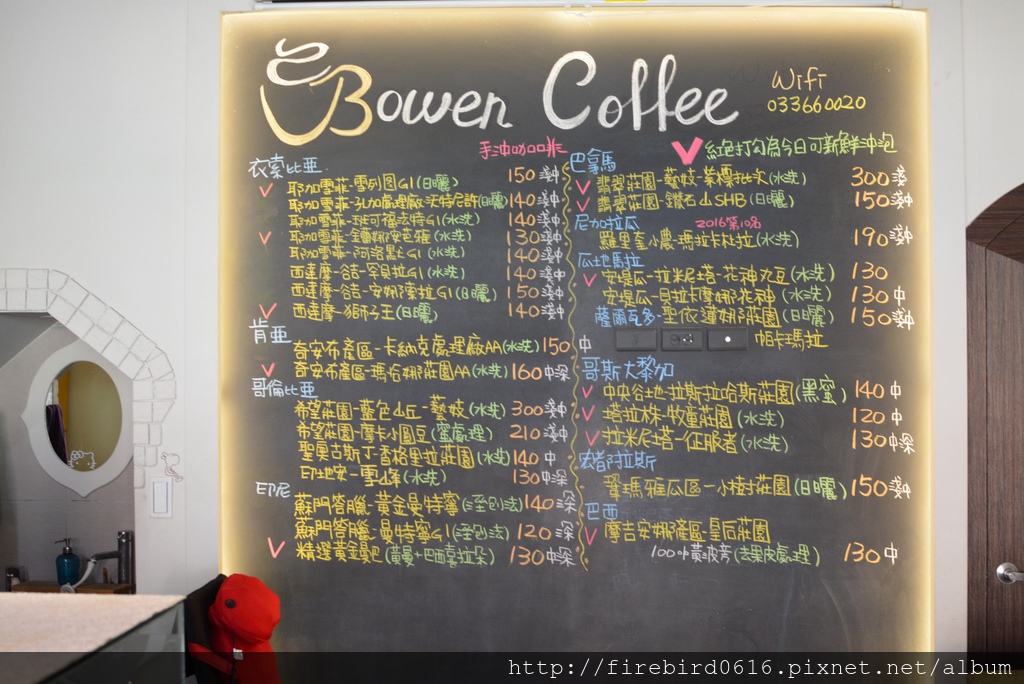 Bowen Coffee
Wifi
033660020
手沖咖啡
紅色打勾為今日可新鮮沖泡
衣索比亞
耶加雪菲-雪列圖G1(日曬) 150 淺中
耶加雪菲-孔加處理廠-沃特尼許(日曬) 140 淺中
耶加雪菲-班可福法特G1(水洗) 140 淺中
耶加雪菲 130 淺中
耶加雪菲-阿洛黑G1(水洗) 140 淺中
西達摩-谷吉-罕貝拉G1(水洗) 140 淺中
西達摩-谷吉-安娜索拉G1(日曬) 150 淺中
西達摩-獅子王(日曬) 140 淺中
肯亞
奇安布產區-卡納克處理廠AA(水洗) 150 中
奇安布產區-瑪哈娜莊園AA(水洗) 160 中深
哥倫比亞
希望莊園-藍色山丘-藝妓(水洗) 300 淺中
希望莊園-摩卡小圓豆(蜜處理) 210 淺中
聖奧古斯丁-香格里拉莊園(水洗) 140 中
印地安-雪峰(水洗) 130 中深
印尼
蘇門答臘-黃金曼特寧 140 深
蘇門答臘-曼特寧G1 120 深
精選黃金曼巴(黃曼+巴西喜拉朵) 130 中深
巴拿馬
翡翠莊園-藝妓-業樽批次(水洗) 300 淺
翡翠莊園-鑽石山SHB(日曬) 150 淺中
尼加拉瓜 2016第10名
羅里奎小農-瑪拉卡杜拉(水洗) 190 淺中
瓜地馬拉
安堤瓜-拉米尼塔-花神丸豆(水洗) 130
安堤瓜-貝拉卡摩娜花神(水洗) 130 中
薩爾瓦多-聖依蓮娜莊園(日曬) 150 淺中
帕卡瑪拉
哥斯大黎加
中央谷地-拉斯拉哈斯莊園(黑蜜) 140 中
塔拉株-牧童莊園(水洗) 120 中
拉米尼塔-征服者(水洗) 130 中深
宏都拉斯
瑪雅瓜區-小樹莊園(日曬) 150 淺中
巴西
摩吉安娜產區-皇后莊園
100%黃波旁(去果皮處理) 130 中
http://firebird0616.pixnet.net/album